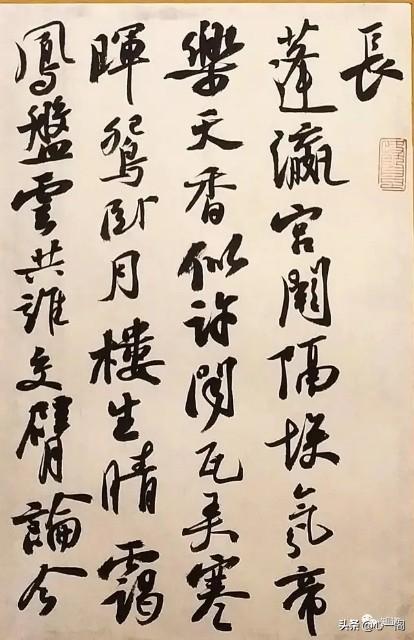 長
蓬瀛宮闕隔埃氛帝
樂天香似許聞瓦弄寒
暉鴛臥月樓生晴靄
鳳盤雲共誰交臂論今
头条 @心一阁